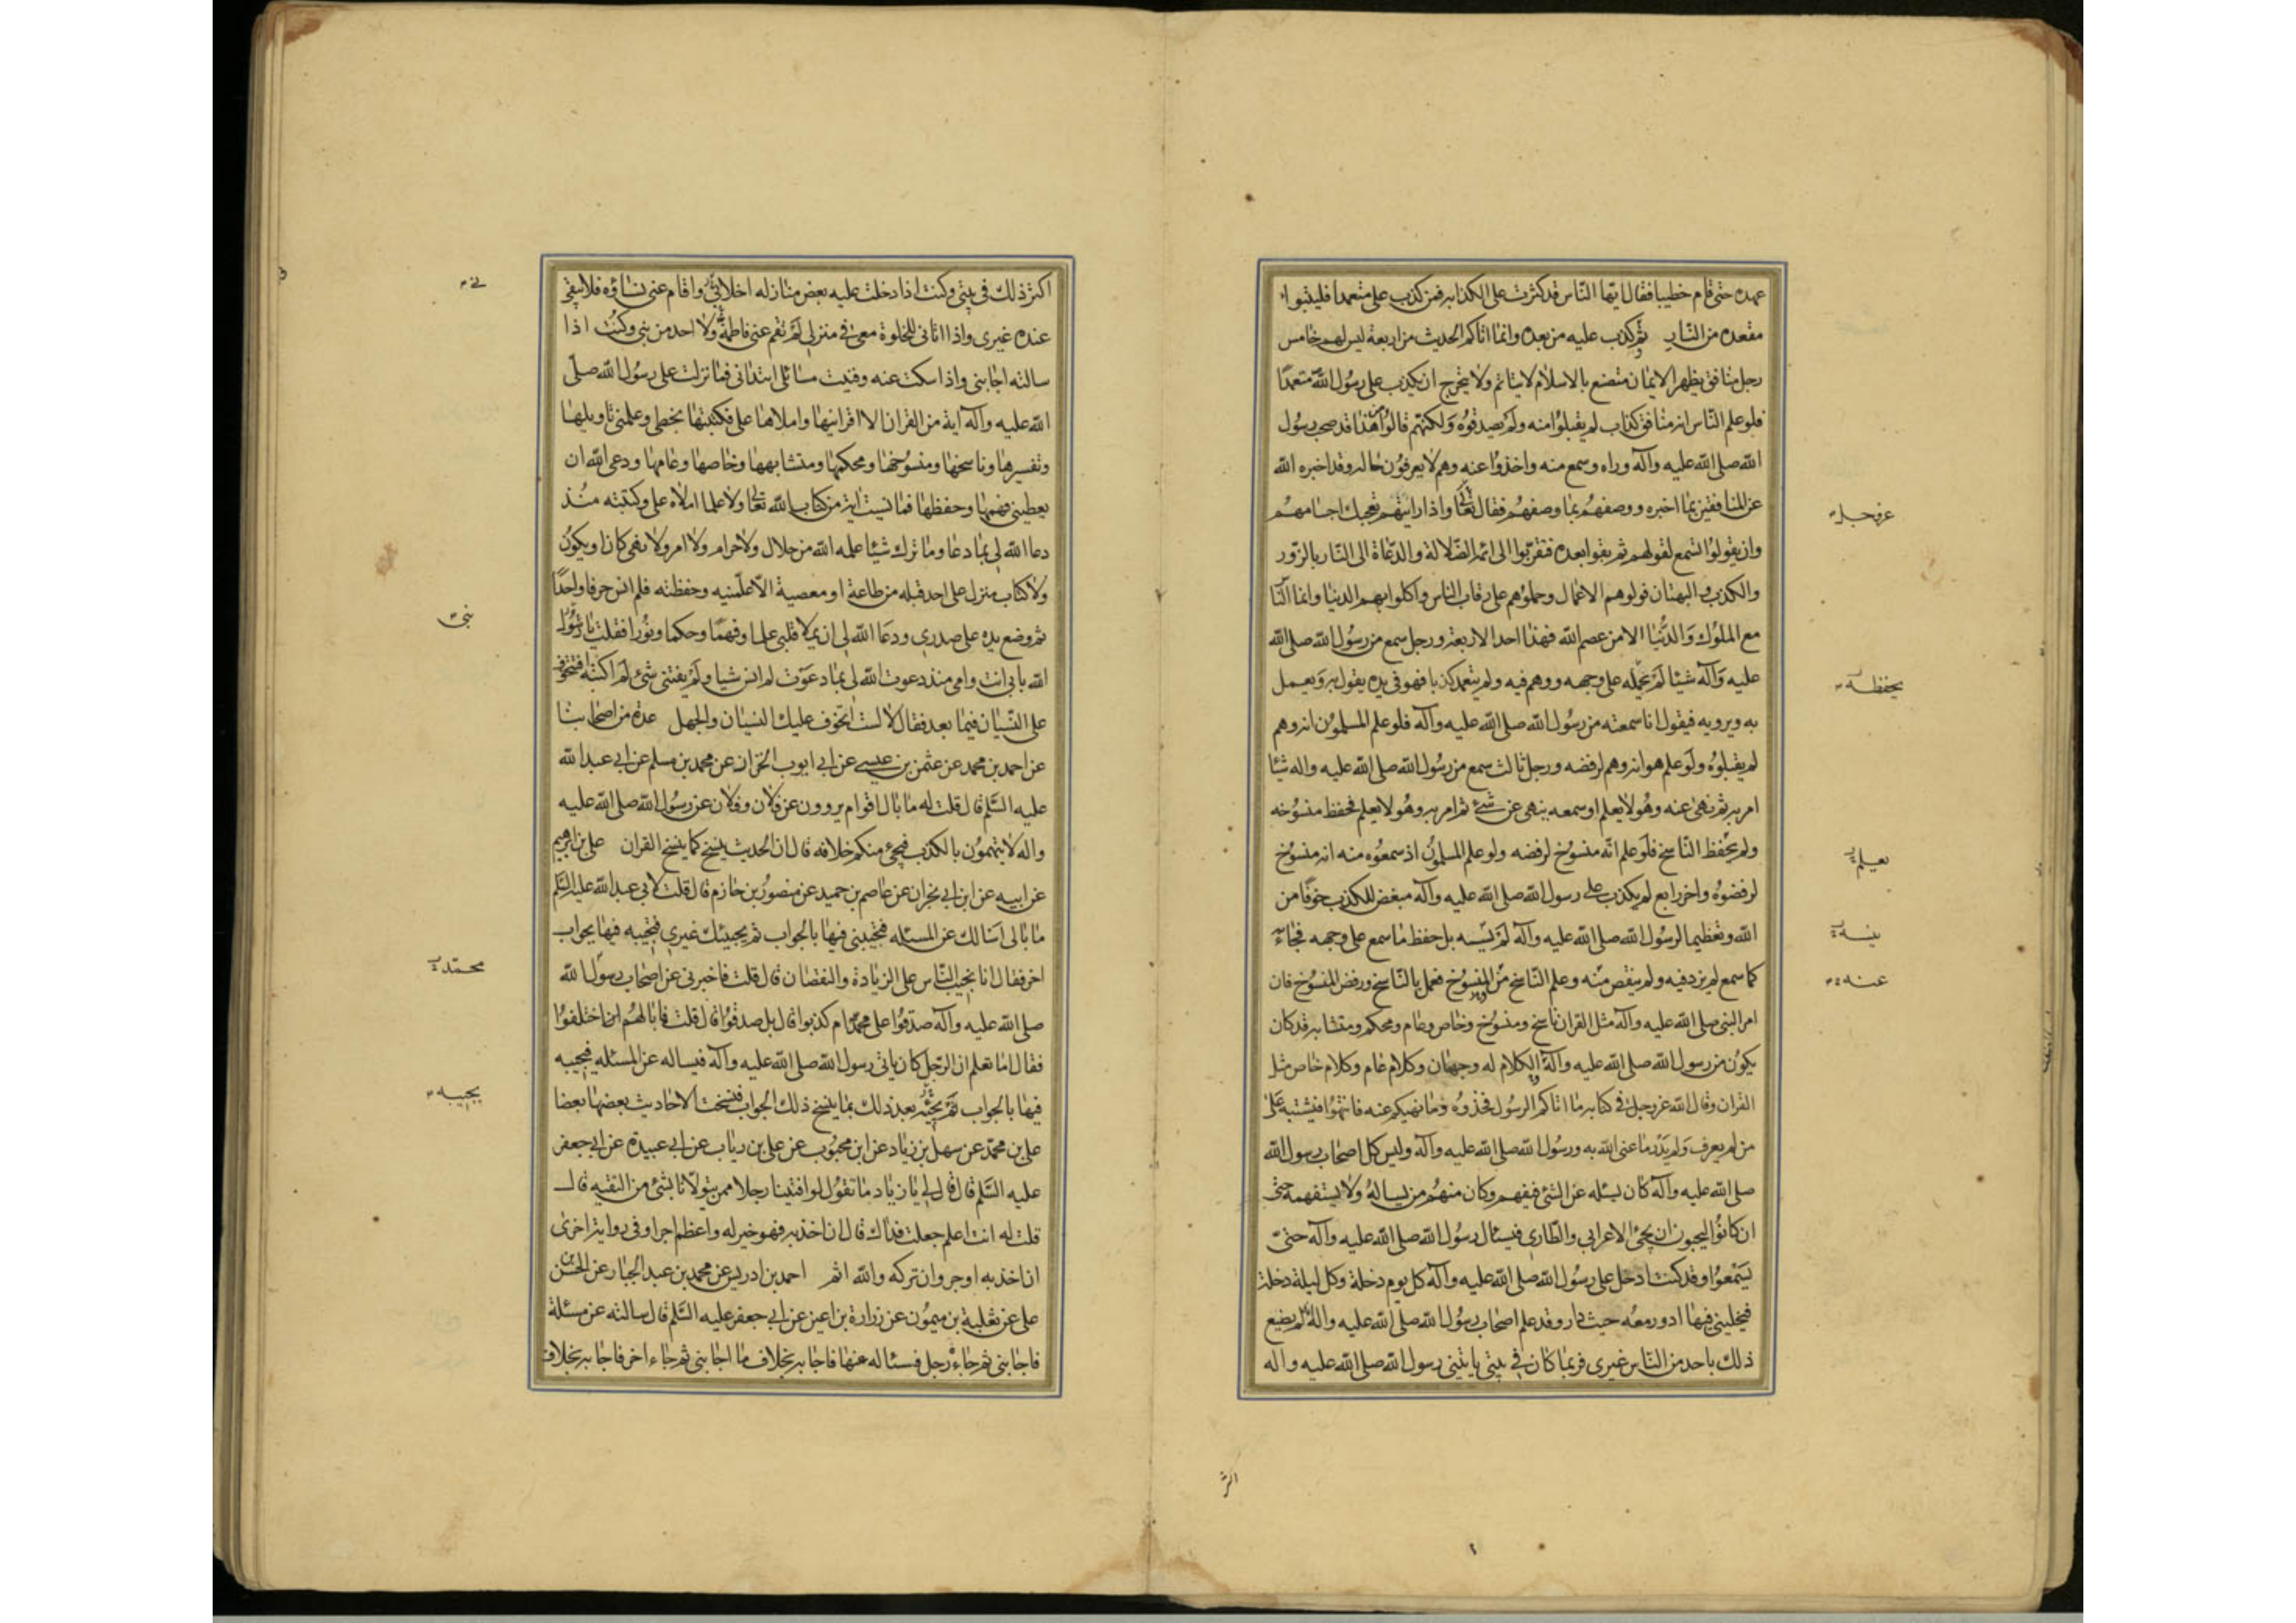 عهده حتى قام خطيبا فقال ايها الناس قد كثرت على الكذابه فمن كذب على متعمدا فليتبوا
مقعده من النار ثم كذب عليه من بعده وانما اتاكم الحديث من اربعة ليس لهم خامس
رجل منافق يظهر الايمان متصنع بالاسلام لا يتاثم ولا يتحرج ان يكذب على رسول الله متعمدا
فلو علم الناس انه منافق كذاب لم يقبلوا منه ولم يصدقوه ولكنهم قالوا هذا قد صحب رسول
الله صلى الله عليه وآله وراه وسمع منه واخذوا عنه وهم لا يعرفون حاله وقد اخبره الله
عن المنافقين بما اخبره ووصفهم بما وصفهم فقال تعالى واذا رايتهم تعجبك اجسامهم
عز وجل
وان يقولوا تسمع لقولهم ثم بقوا بعده فتقربوا الى ائمة الضلالة والدعاة الى النار بالزور
والكذب والبهتان فولوهم الاعمال وحملوهم على رقاب الناس واكلوا بهم الدنيا وانما الناس
مع الملوك والدنيا الا من عصم الله فهذا احد الاربعة ورجل سمع من رسول الله صلى الله
عليه وآله شيئا لم يحمله على وجهه ووهم فيه ولم يتعمد كذبا فهو في يده يقول به ويعمل
يحفظه
به ويرويه فيقول انا سمعته من رسول الله صلى الله عليه وآله فلو علم المسلمون انه وهم
لم يقبلوه ولو علم هو انه وهم لرفضه ورجل ثالث سمع من رسول الله صلى الله عليه واله شيئا
امر به ثم نهى عنه وهو لا يعلم او سمعه ينهى عن شئ ثم امر به وهو لا يعلم فحفظ منسوخه
ولم يحفظ الناسخ فلو علم انه منسوخ لرفضه ولو علم المسلمون اذ سمعوه منه انه منسوخ
يعلم
لرفضوه واخر رابع لم يكذب على رسول الله صلى الله عليه وآله مبغض للكذب خوفا من
الله وتعظيما لرسول الله صلى الله عليه وآله لم ينسه بل حفظ ما سمع على وجهه فجاء
ينسه
كما سمع لم يزد فيه ولم ينقص منه وعلم الناسخ من المنسوخ فعمل بالناسخ ورفض المنسوخ فان
عنه
امر النبي صلى الله عليه وآله مثل القران ناسخ ومنسوخ وخاص وعام ومحكم ومتشابه قد كان
يكون من رسول الله صلى الله عليه وآله الكلام له وجهان وكلام عام وكلام خاص مثل
القران وقال الله عز وجل في كتابه ما اتاكم الرسول فخذوه وما نهيكم عنه فانتهوا فيشتبه على
من لم يعرف ولم يدر ما عنى الله به ورسول الله صلى الله عليه وآله وليس كل اصحاب رسول الله
صلى الله عليه وآله كان يسئله عن الشئ فيفهم وكان منهم من يساله ولا يستفهمه حتى
ان كانوا ليحبون ان يجئ الاعرابي والطارى فيسئال رسول الله صلى الله عليه وآله حتى
يسمعوا وقد كنت ادخل على رسول الله صلى الله عليه وآله كل يوم دخلة وكل ليلة دخلة
فيخليني فيها ادور معه حيث دار وقد علم اصحاب رسول الله صلى الله عليه واله لم يصنع
ذلك باحد من الناس غيرى فربما كان في بيتي ياتيني رسول الله صلى الله عليه وآله
اكثر
اكثر ذلك في بيتي وكنت اذا دخلت عليه بعض منازله اخلاني واقام عني نساؤه فلا يبقى
عنده غيرى واذا اتاني للخلوة معي في منزلي لم تقم عني فاطمة ولا احد من بني وكنت اذا
سالته اجابني واذا سكت عنه وفنيت مسائلي ابتداني فما نزلت على رسول الله صلى
الله عليه وآله آية من القران الا اقرانيها واملاها على فكتبتها بخطي وعلمني تاويلها
وتفسيرها وناسخها ومنسوخها ومحكمها ومتشابهها وخاصها وعامها ودعى الله ان
يعطيني فهمها وحفظها فما نسيت اية من كتاب الله تعالى ولا علما املاه على وكتبته منذ
دعا الله لي بما دعا وما ترك شيئا علمه الله من حلال ولا حرام ولا امر ولا نهى كان او يكون
ولا كتاب منزل على احد قبله من طاعة او معصية الا علمنيه وحفظته فلم انس حرفا واحدا
ثم وضع يده على صدرى ودعا الله لي ان يملا قلبي علما وفهما وحكما ونورا فقلت يا رسول
نبي
الله بابي انت وامي منذ دعوت الله لي بما دعوت لم انس شيا ولم يفتني شئ لم اكتبه افتتخوف
على النسيان فيما بعد فقال لا لست اتخوف عليك النسيان والجهل عدة من اصحابنا
عن احمد بن محمد عن عثمن بن عيسى عن ابي ايوب الخزاز عن محمد بن مسلم عن ابي عبد الله
عليه السلم قال قلت له ما بال اقوام يروون عن فلان وفلان عن رسول الله صلى الله عليه
واله لا يتهمون بالكذب فيجئ منكم خلافه قال ان الحديث ينسخ كما ينسخ القران على بن ابرهيم
عن ابيه عن ابن ابي نجران عن عاصم بن حميد عن منصور بن حازم قال قلت لابي عبد الله عليه السلم
ما بالى اسالك عن المسئله فتجيبني فيها بالجواب ثم يجيئك غيرى فتجيبه فيها بجواب
اخر فقال انا نجيب الناس على الزيادة والنقصان قال قلت فاخبرني عن اصحاب رسول الله
محمد
صلى الله عليه وآله صدقوا على محمد ام كذبوا قال بل صدقوا قال قلت فما بالهم اختلفوا
فقال اما تعلم ان الرجل كان ياتي رسول الله صلى الله عليه وآله فيساله عن المسئله فيجيبه
فيها بالجواب ثم يجيئه بعد ذلك بما ينسخ ذلك الجواب فنسخت الاحاديث بعضها بعضا
يجيبه
على بن محمد عن سهل بن زياد عن ابن محبوب عن على بن رياب عن ابي عبيدة عن ابي جعفر
عليه السلم قال قال لي يا زياد ما تقول لو افتينا رجلا ممن يتولانا بشئ من التقيه قال
قلت له انت اعلم جعلت فداك قال ان اخذ به فهو خير له واعظم اجرا وفي رواية اخرى
ان اخذ به اوجر وان تركه والله اثم احمد بن ادريس عن محمد بن عبد الجبار عن الحسن بن
على عن ثعلبة بن ميمون عن زرارة بن اعين عن ابي جعفر عليه السلم قال سالته عن مسئلة
فاجابني ثم جاءه رجل فسئاله عنها فاجابه بخلاف ما اجابني ثم جاء اخر فاجابه بخلاف